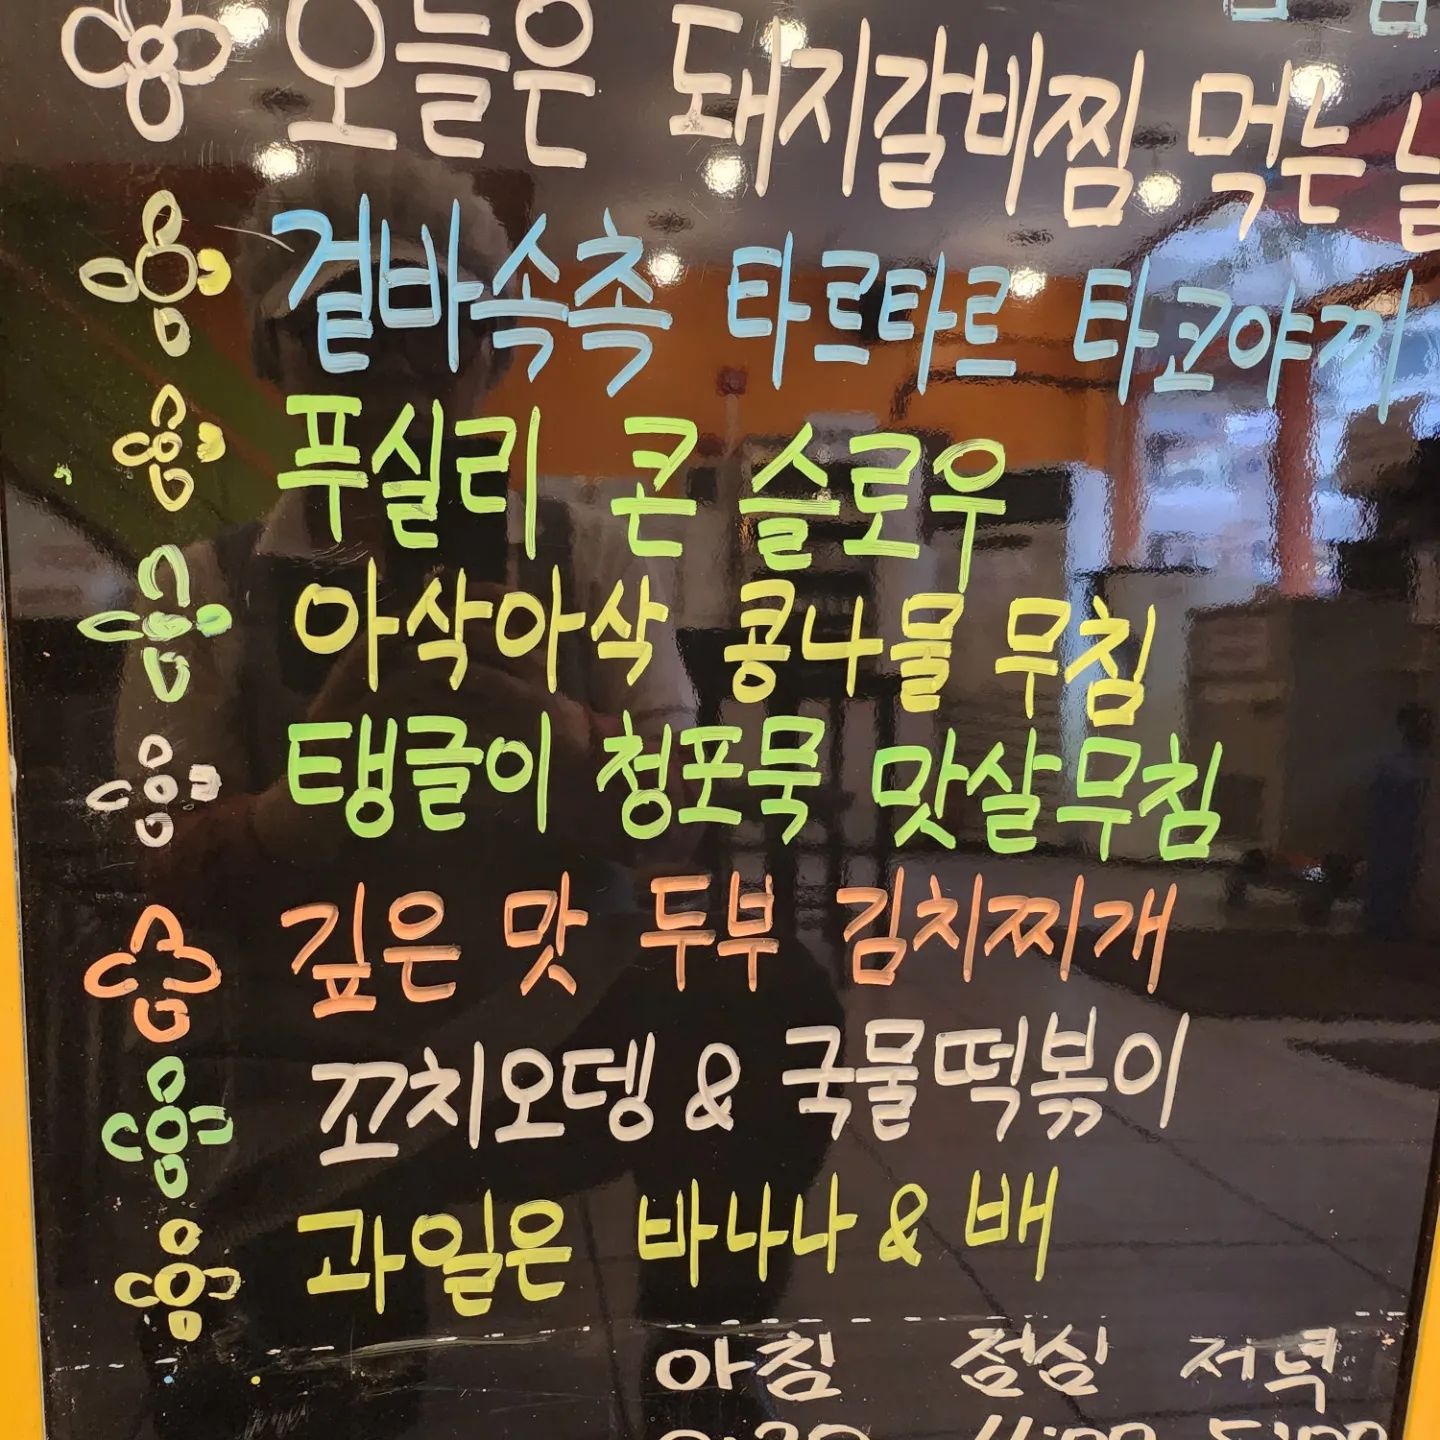 오늘은 돼지갈비찜 먹는
겉바속촉 타르타르 타코야끼
푸실리 콘 슬로우
아삭아삭 콩나물 무침
탱글이 청포묵 맛살무침
깊은 맛 두부 김치찌개
꼬치오뎅 & 국물떡볶이
과일은 바나나 & 배
아침 점심 저녁